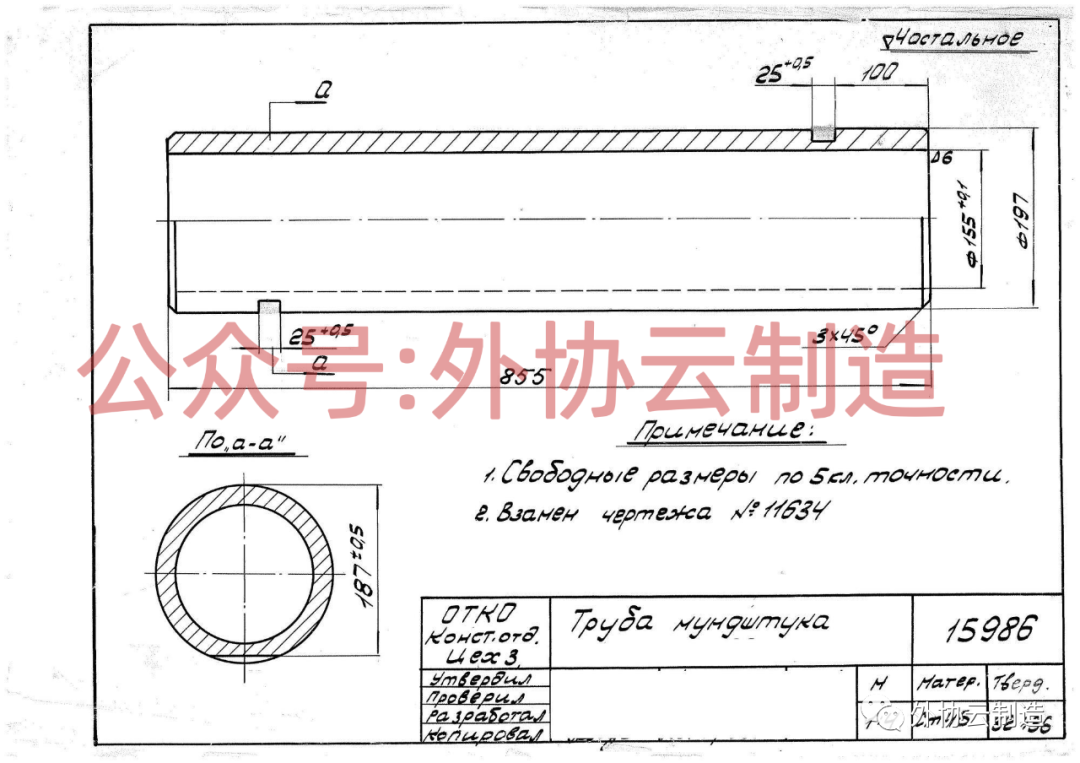 ∇ Частальное
25⁺⁰,⁵
100
a
∆6
ф155⁺⁰,¹
ф197
25⁺⁰,⁵
a
3×45°
855
公众号:外协云制造
По „а-а"
187±0,5
Примечание:
1. Свободные размеры по 5 кл. точности.
2. Взамен чертежа №11634
ОТКО
Конст. отд.
Цех 3
Труба мундштука
15986
Утвердил
Проверил
Разработал
Копировал
М
Матер.
Тверд.
外协云制造